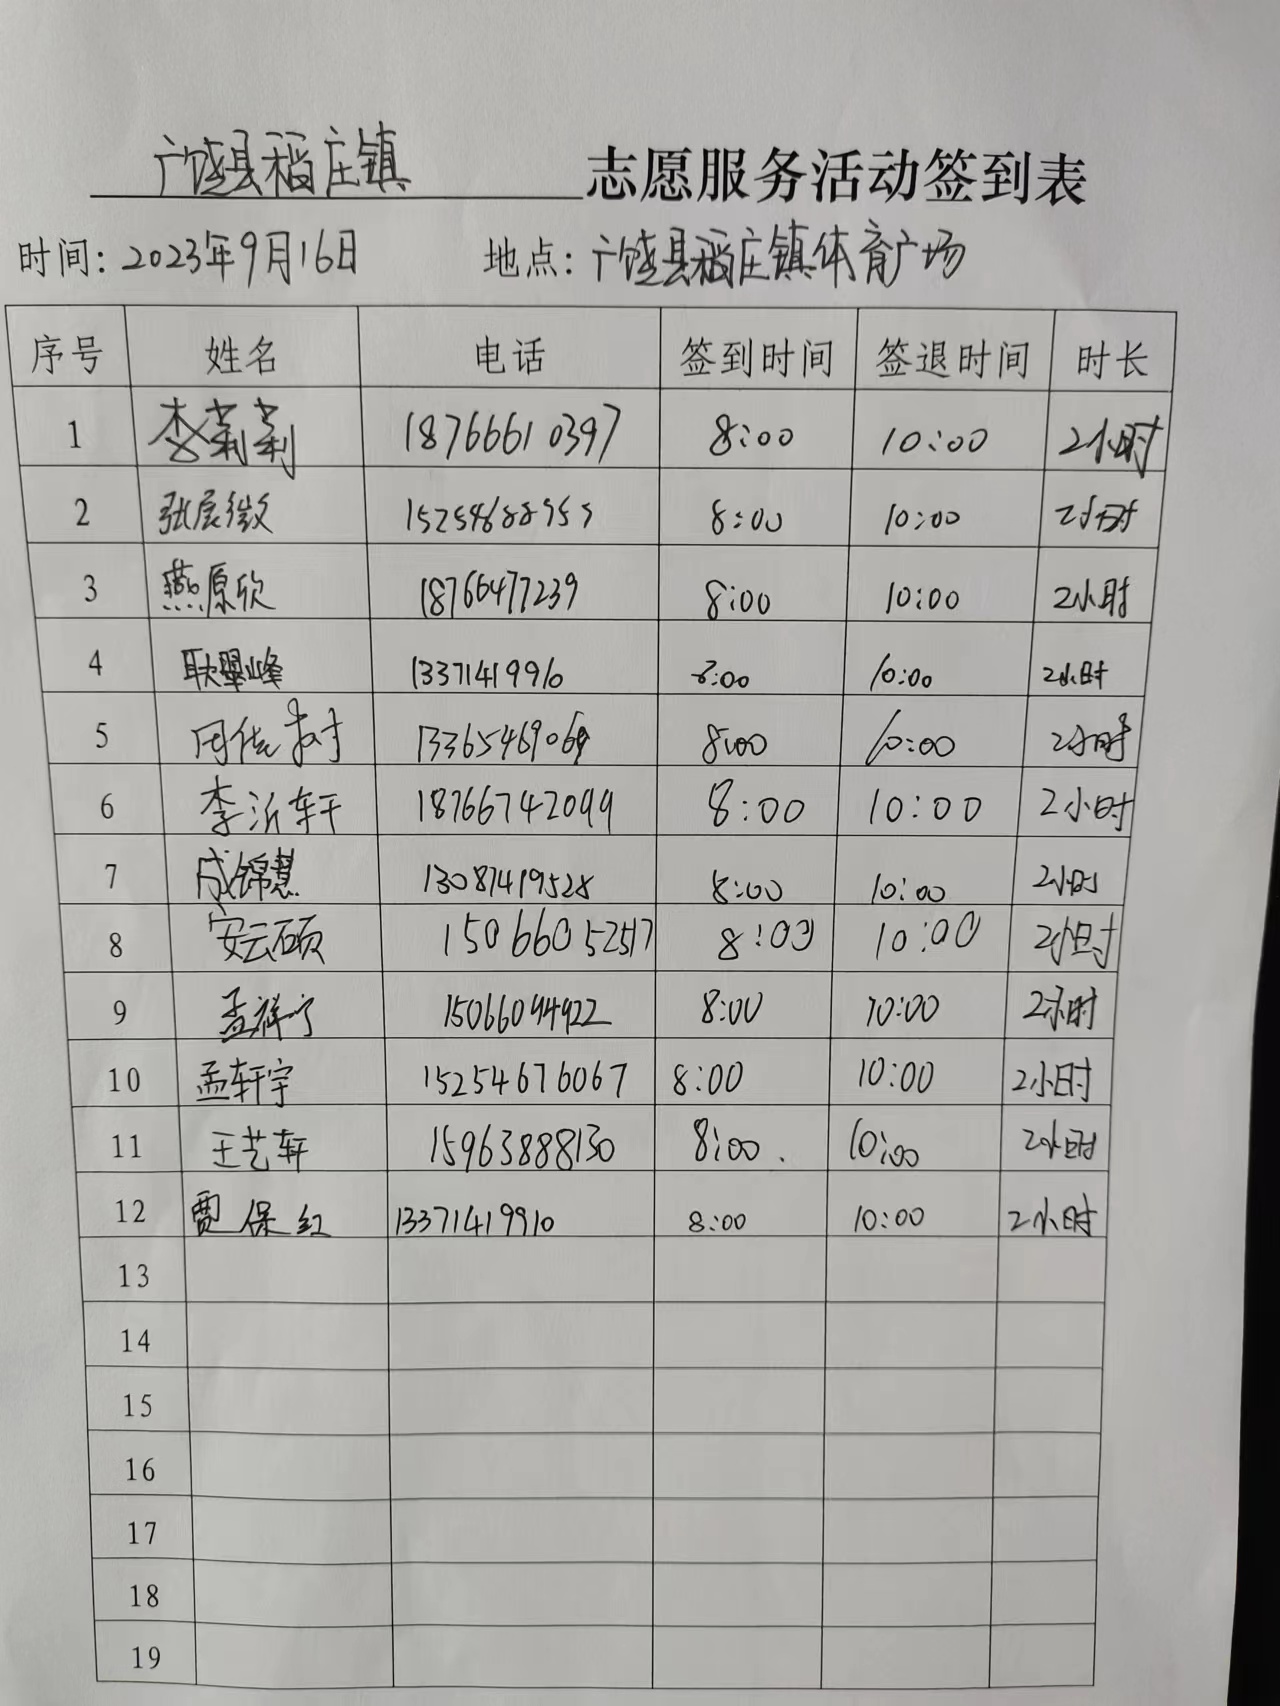 广饶县稻庄镇 志愿服务活动签到表
时间: 2023年9月16日 地点: 广饶县稻庄镇体育广场
序号 姓名 电话 签到时间 签退时间 时长
1 李莉莉 18766610397 8:00 10:00 2小时
2 张展微 8:00 10:00 2小时
3 燕原欣 18766477239 8:00 10:00 2小时
4 耿翠峰 13371419910 8:00 10:00 2小时
5 13365469069 8:00 10:00 2小时
6 李沂轩 18766742099 8:00 10:00 2小时
7 成锦慧 13087419528 8:00 10:00 2小时
8 安云硕 15066052517 8:00 10:00 2小时
9 孟祥宁 15066094922 8:00 10:00 2小时
10 孟轩宇 15254676067 8:00 10:00 2小时
11 王艺轩 15963888130 8:00 10:00 2小时
12 贾保红 13371419910 8:00 10:00 2小时
13
14
15
16
17
18
19